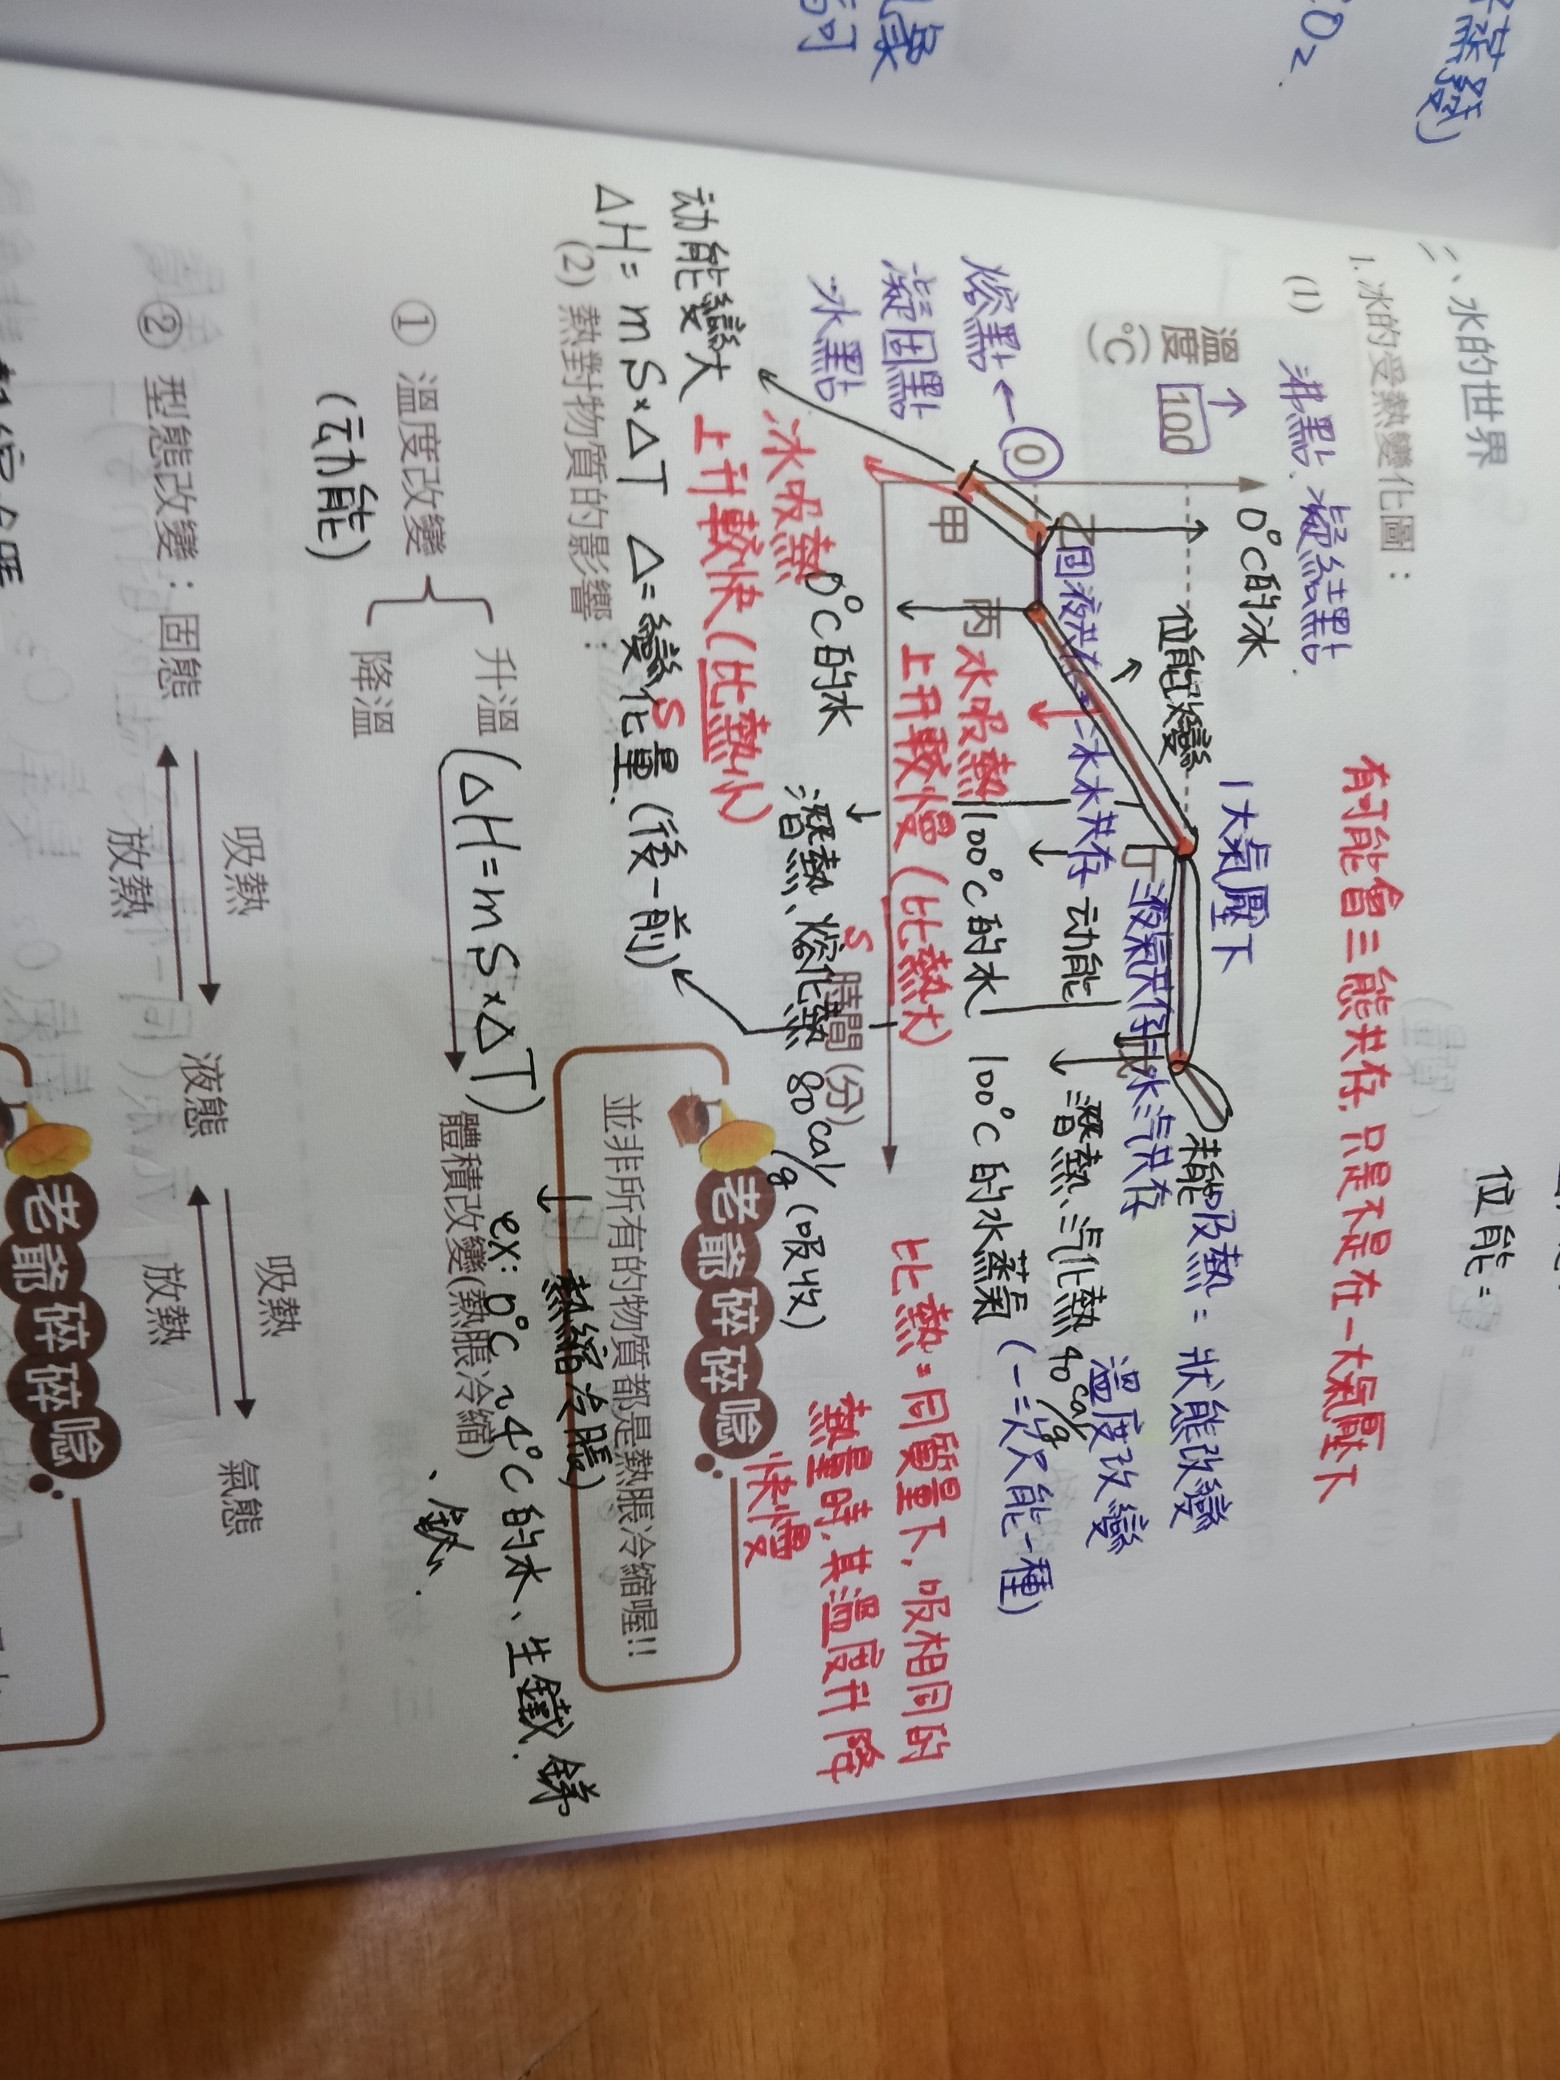 二、水的世界
1. 冰的受熱變化圖：
(1)
沸點、凝結點
有可能會三態共存，只是不是在一大氣壓下
位能=
溫度
(℃)
100
0℃的冰
1大氣壓下
位能變
熔點
0
凝固點
冰點
甲
乙
丙
丁
戊
固液共存=冰水共存
液氣共存=水汽共存
动能
潛熱、汽化熱
吸熱=狀態改變
溫度改變
(一次只能一種)
水吸熱
上升較慢(比熱大)
100℃的水
100℃的水蒸氣
冰吸熱
上升較快(比熱小)
S
S
0℃的水
潛熱、熔化熱 80 cal/g (吸收)
時間(分)
比熱=同質量下，吸相同的
熱量時，其溫度升降
快慢
动能變大
ΔH=mS×ΔT Δ=變化量(後-前)
(2) 熱對物質的影響：
① 溫度改變
(动能)
升溫
降溫
(ΔH=mS×ΔT)
體積改變(熱脹冷縮)
老爺碎碎唸
並非所有的物質都是熱脹冷縮喔!!
熱縮冷脹)
ex: 0℃~4℃的水、生鐵、銻
、鉍.
② 型態改變：固態
吸熱
放熱
液態
吸熱
放熱
氣態
老爺碎碎唸